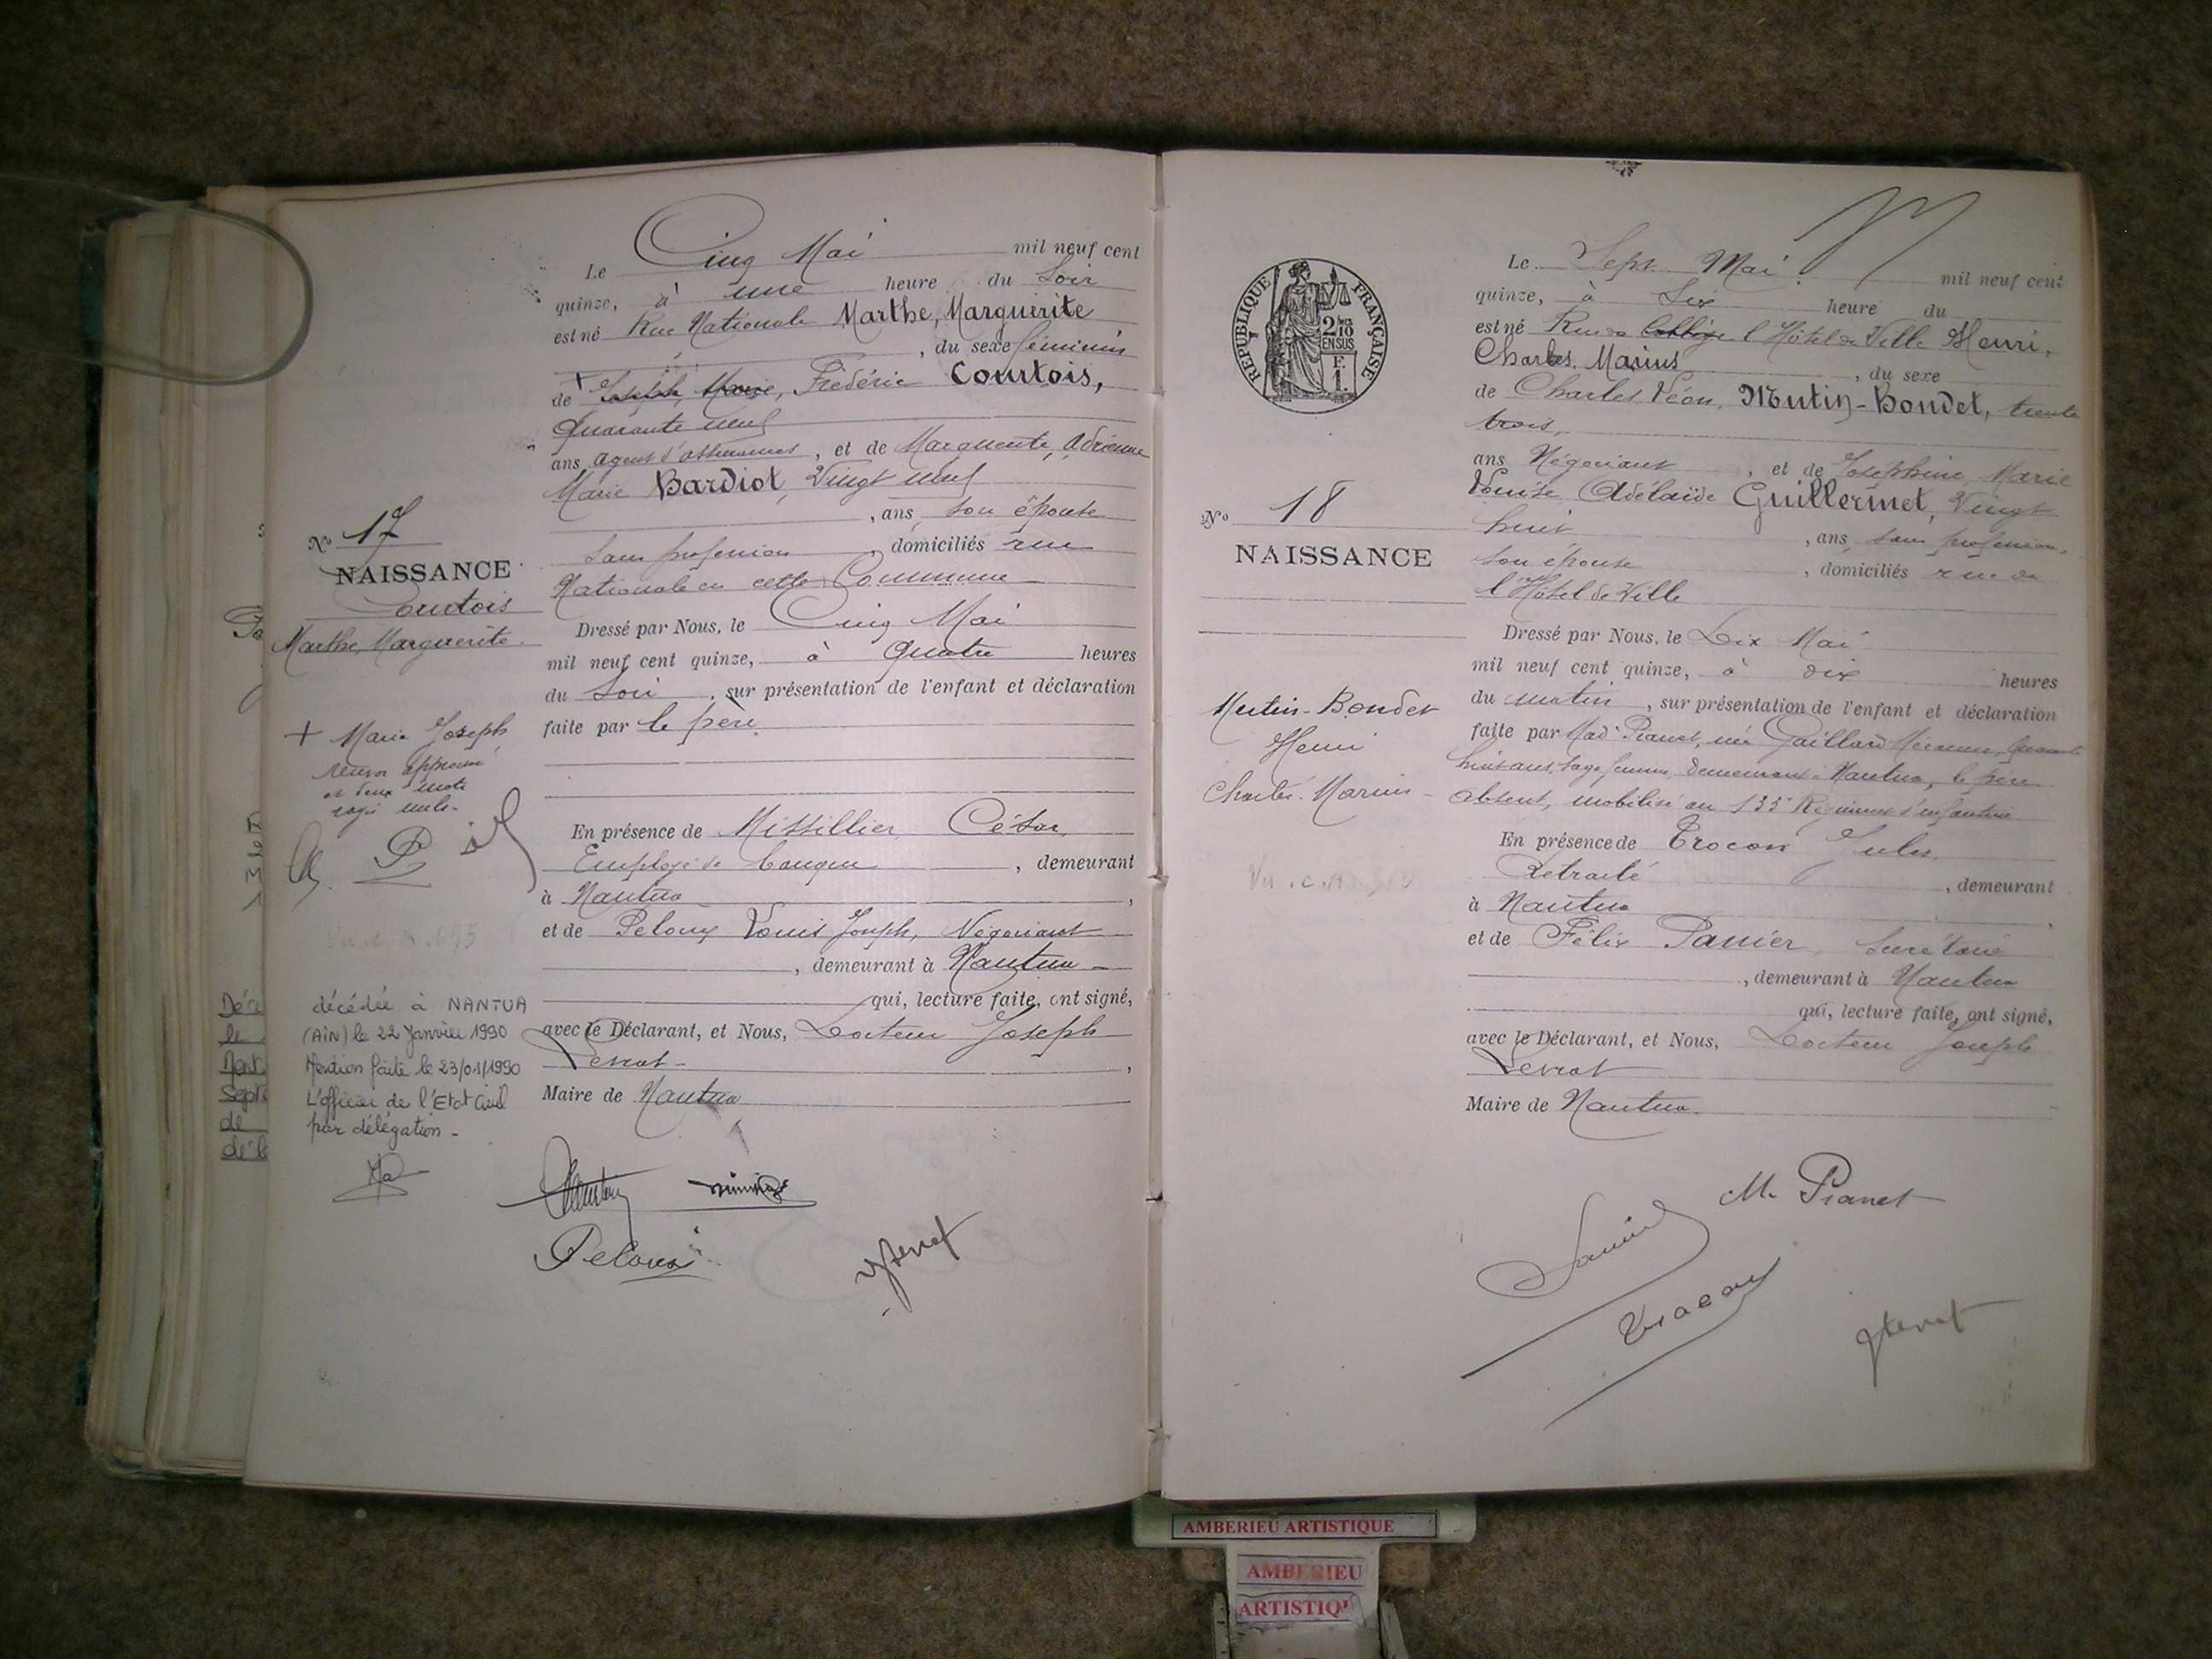 Le Cinq Mai mil neuf cent
quinze, à une heure du Soir
est né Rue Nationale Marthe, Marguerite
, du sexe féminin
de + Joseph, Marie, Frédéric Courtois,
Quarante neuf
ans agent d'assurances, et de Marguerite, Adrienne
Marie Bardiot, Vingt neuf
, ans, son épouse
sans profession, domiciliés rue
Nationale en cette Commune
Dressé par Nous, le Cinq Mai
mil neuf cent quinze, à Quatre heures
du Soir, sur présentation de l'enfant et déclaration
faite par le père.
En présence de Missillier César,
Employé de banque, demeurant
à Nantua,
et de Peloux Louis Joseph, Négociant
, demeurant à Nantua
qui, lecture faite, ont signé,
avec le Déclarant, et Nous, Docteur Joseph
Levrat,
Maire de Nantua
Peloux
No 17
NAISSANCE
Courtois
Marthe, Marguerite
+ Marie Joseph
renvoi approuvé
et deux mots
rayés nuls-
décédée à NANTUA
(AIN) le 22 Janvier 1990
Mention faite le 23/01/1990
L'officier de l'Etat Civil
par délégation -
REPUBLIQUE FRANÇAISE
2/10
EN SUS
F.
1.
Le Sept Mai mil neuf cent
quinze, à Six heure du
est né Rue de Collège l'Hôtel de Ville Henri,
Charles, Marius, du sexe
de Charles Léon, Mutin-Bondet, trente
trois,
ans Négociant, et de Joséphine, Marie
Louise Adélaïde Guillermet, Vingt
huit, ans, sans profession,
son épouse, domiciliés rue de
l'Hôtel de Ville
Dressé par Nous, le Dix Mai
mil neuf cent quinze, à dix heures
du matin, sur présentation de l'enfant et déclaration
faite par Mad Pianet, née Gaillard
huit ans, sage femme, demeurant à Nantua, le père
absent, mobilisé au 133e Régiment d'infanterie
En présence de Trocon Jules
Retraité, demeurant
à Nantua
et de Félix Panier, Secrétaire
, demeurant à Nantua
qui, lecture faite, ont signé,
avec le Déclarant, et Nous, Docteur Joseph
Levrat
Maire de Nantua.
M. Pianet
No 18
NAISSANCE
Mutin-Bondet
Henri
Charles-Marius
AMBERIEU ARTISTIQUE
AMBERIEU
ARTISTIQ